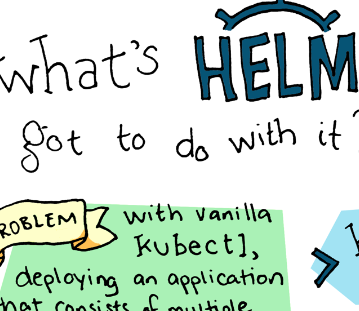 what's HELM
got to do with it?
PROBLEM with vanilla
kubectl,
deploying an application
that consists of multiple